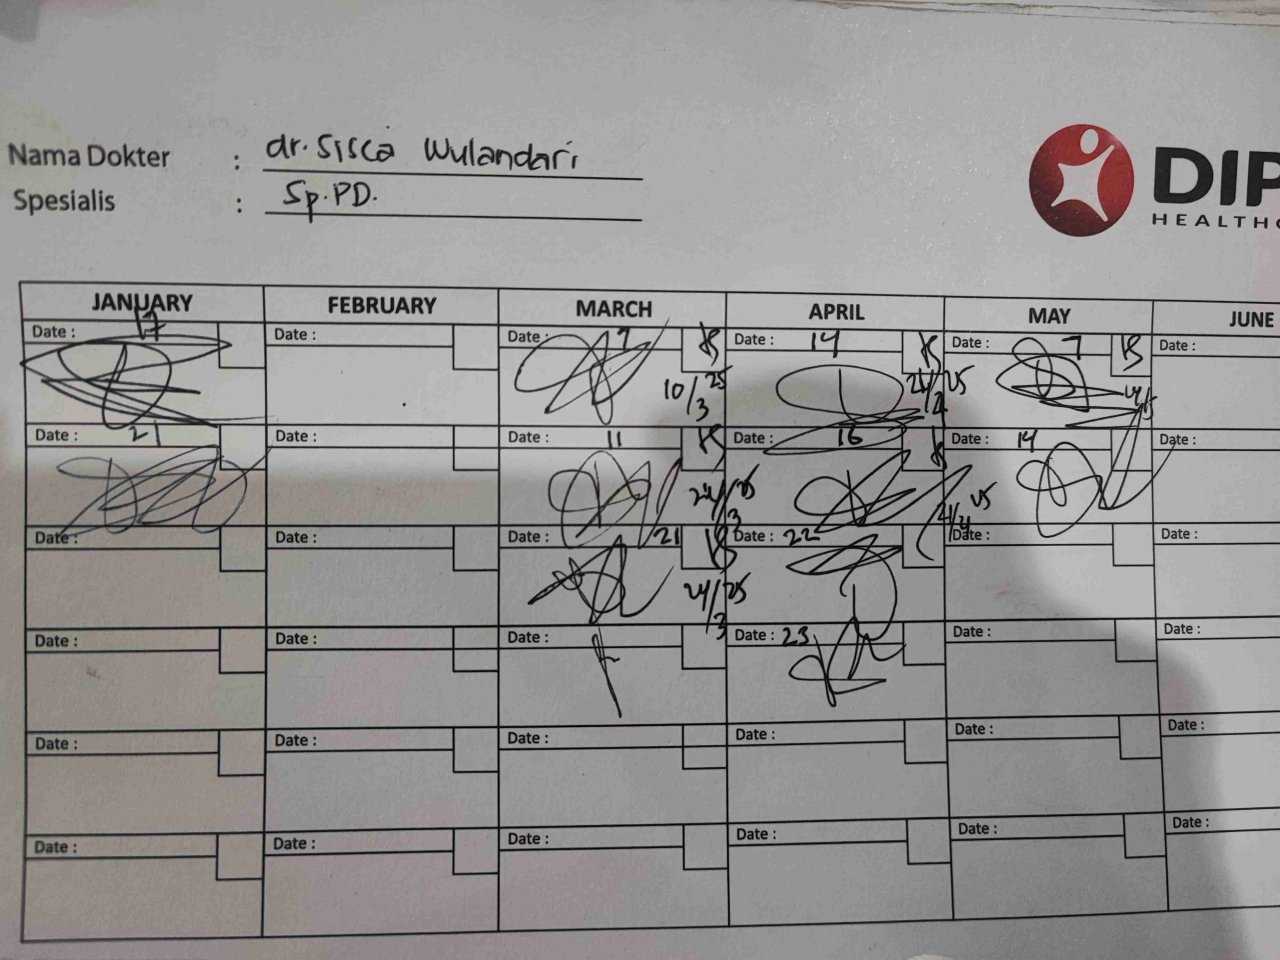 Nama Dokter : dr. Sisca Wulandari
Spesialis : Sp.PD.
DIP
HEALTHC
JANUARY FEBRUARY MARCH APRIL MAY JUNE
Date : 17 Date : Date : 7 Date : 14 Date : 7 Date :
10/3 25
Date : 21 Date : Date : 11 Date : 16 Date : 14 Date :
24/3 25
Date : Date : Date : 21 Date : 22 Date : Date :
24/3 25
Date : Date : Date : Date : 23 Date : Date :
Date : Date : Date : Date : Date : Date :
Date : Date : Date : Date : Date : Date :